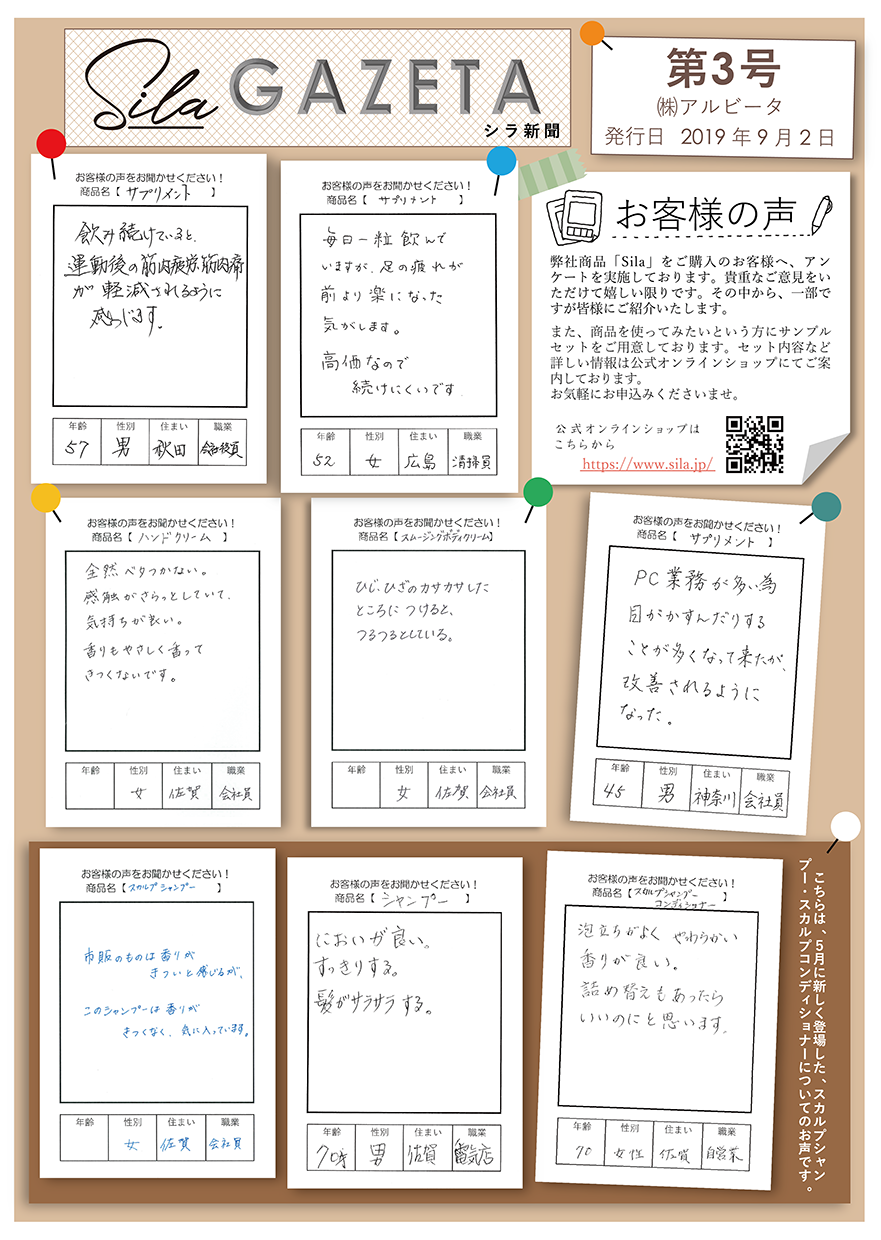 Sila GAZETA
シラ新聞
第3号
㈱アルビータ
発行日 2019年9月2日
お客様の声をお聞かせください！
商品名【 サプリメント 】
飲み続けていると、
運動後の筋肉疲労、筋肉痛
が軽減されるように
感じます。
年齢 性別 住まい 職業
57 男 秋田 会社役員
お客様の声をお聞かせください！
商品名【 サプリメント 】
毎日一粒飲んで
いますが、足の疲れが
前より楽になった
気がします。
高価なので
続けにくいです
年齢 性別 住まい 職業
52 女 広島 清掃員
お客様の声
弊社商品「Sila」をご購入のお客様へ、アン
ケートを実施しております。貴重なご意見をい
ただけて嬉しい限りです。その中から、一部で
すが皆様にご紹介いたします。
また、商品を使ってみたいという方にサンプル
セットをご用意しております。セット内容など
詳しい情報は公式オンラインショップにてご案
内しております。
お気軽にお申込みくださいませ。
公式オンラインショップは
こちらから
https://www.sila.jp/
お客様の声をお聞かせください！
商品名【 ハンドクリーム 】
全然ベタつかない。
感触がさらっとしていて、
気持ちが良い。
香りもやさしく香って
きつくないです。
年齢 性別 住まい 職業
女 佐賀 会社員
お客様の声をお聞かせください！
商品名【スムージングボディクリーム】
ひじ、ひざのカサカサした
ところにつけると、
つるつるとしている。
年齢 性別 住まい 職業
女 佐賀 会社員
お客様の声をお聞かせください！
商品名【 サプリメント 】
PC業務が多い為
目がかすんだりする
ことが多くなって来たが、
改善されるように
なった。
年齢 性別 住まい 職業
45 男 神奈川 会社員
お客様の声をお聞かせください！
商品名【スカルプシャンプー 】
市販のものは香りが
きついと感じるが、
このシャンプーは香りが
きつくなく、気に入っています。
年齢 性別 住まい 職業
女 佐賀 会社員
お客様の声をお聞かせください！
商品名【 シャンプー 】
においが良い。
すっきりする。
髪がサラサラする。
年齢 性別 住まい 職業
70才 男 佐賀 電気店
お客様の声をお聞かせください！
商品名【スカルプシャンプー
コンディショナー 】
泡立ちがよく やわらかい
香りが良い。
詰め替えもあったら
いいのにと思います。
年齢 性別 住まい 職業
70 女性 佐賀 自営業
こちらは、5月に新しく登場した、スカルプシャン
プー・スカルプコンディショナーについてのお声です。